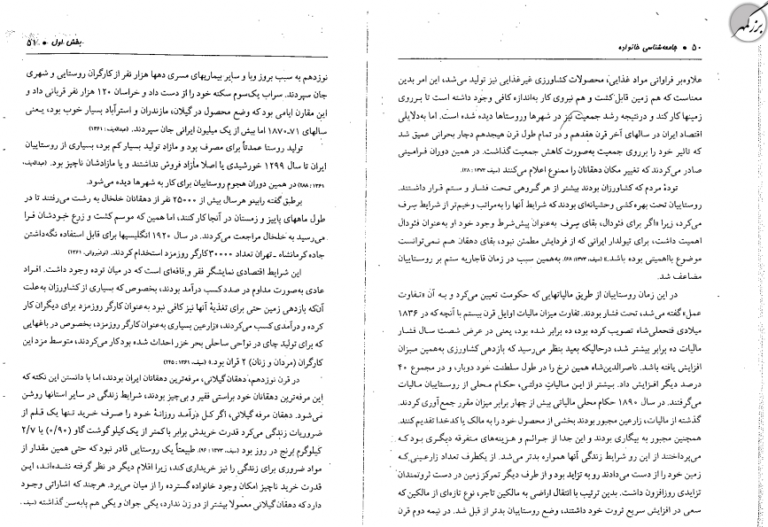 ۵۰ • جامعه‌شناسی خانواده
علاوه‌بر فراوانی مواد غذایی، محصولات کشاورزی غیرغذایی نیز تولید می‌شد، این امر بدین
معناست که هم زمین قابل کشت و هم نیروی کار به‌اندازه کافی وجود داشته است تا برروی
زمینها کار کند و درنتیجه رشد جمعیت نیز در شهرها وروستاها دیده شده است. اما به‌دلایلی
اقتصاد ایران در سالهای آخر قرن هفدهم و در تمام طول قرن هیجدهم دچار بحرانی عمیق شد
که تاثیر خود را برروی جمعیت به‌صورت کاهش جمعیت گذاشت. در همین دوران فرامینی
صادر می‌کردند که تغییر مکان دهقانان را ممنوع اعلام می‌کنند
تودهٔ مردم که کشاورزان بودند بیشتر از هر گروهی تحت فشار و ستم قرار داشتند.
روستاییان تحت بهره‌کشی وحشیانه‌ای بودند که شرایط آنها را به‌مراتب وخیم‌تر از شرایط سرف
می‌کرد، زیرا «اگر برای فئودال، بقای سرف به‌عنوان پیش‌شرط وجود خود او به‌عنوان فئودال
اهمیت داشت، برای تیولدار ایرانی که از فردایش مطمئن نبود، بقای دهقان هم نمی‌توانست
موضوع بااهمیتی بوده باشد.» به‌همین سبب در زمان قاجاریه ستم بر روستاییان
مضاعف شد.
در این زمان روستاییان از طریق مالیاتهایی که حکومت تعیین می‌کرد و به آن «تفاوت
عمل» گفته می‌شد، تحت فشار بودند. تفاوت میزان مالیات اوایل قرن بیستم با آنچه که در ۱۸۳۶
میلادی فتحعلی‌شاه تصویب کرده بود، ده برابر شده بود، یعنی در عرض شصت سال فشار
مالیات ده برابر بیشتر شد، درحالیکه بعید بنظر می‌رسید که بازدهی کشاورزی به‌همین میزان
افزایش یافته باشد. ناصرالدین‌شاه همین نرخ را در طول سلطنت خود دوبار، و در مجموع ۴۰
درصد دیگر افزایش داد. بیشتر از این مالیات دولتی، حکام محلی از روستاییان مالیات
می‌گرفتند. در سال ۱۸۹۰ حکام محلی مالیاتی بیش از چهار برابر میزان مقرر جمع‌آوری کردند.
گذشته از مالیات، زارعین مجبور بودند بخشی از محصول خود را به مالک یا کدخدا تقدیم کنند.
همچنین مجبور به بیگاری بودند و این جدا از جرائم و هزینه‌های متفرقه دیگری بود که
می‌پرداختند از این رو شرایط زندگی آنها همواره بدتر می‌شد. از یکطرف تعداد زارعینی که
زمین خود را از دست می‌دادند رو به تزاید بود و از طرف دیگر تمرکز زمین در دست ثروتمندان
تزایدی روزافزون داشت. بدین ترتیب با انتقال اراضی به مالکین تاجر، نوع تازه‌ای از مالکین که
سعی در افزایش سریع ثروت خود داشتند، وضع روستاییان بدتر از قبل شد. در نیمه دوم قرن
بخش اول • ۵۱
نوزدهم به سبب بروز وبا و سایر بیماریهای مسری دهها هزار نفر از کارگران روستایی و شهری
جان سپردند. سراب یک‌سوم سکنه خود را از دست داد و خراسان ۱۲۰ هزار نفر قربانی داد و
این مقارن ایامی بود که وضع محصول در گیلان، مازندران و استرآباد بسیار خوب بود، یعنی
سالهای ۱۸۷۰.۷۱ اما بیش از یک میلیون ایرانی جان سپردند.
تولید روستا عمدتاً برای مصرف بود و مازاد تولید بسیار کم بود، بسیاری از روستاییان
ایران تا سال ۱۲۹۹ خورشیدی یا اصلا مازاد فروش نداشتند و یا مازادشان ناچیز بود.
در همین دوران هجوم روستاییان برای کار به شهرها دیده می‌شود.
برطبق گفته رابینو هرسال بیش از ۲۵۰۰۰ نفر از دهقانان خلخال به رشت می‌رفتند تا در
طول ماههای پاییز و زمستان در آنجا کار کنند، اما همین که موسم کشت و زرع خودشان فرا
می‌رسید به خلخال مراجعت می‌کردند. در سال ۱۹۲۰ انگلیسیها برای قابل استفاده نگه‌داشتن
جاده کرمانشاه ـ تهران تعداد ۳۰۰۰۰ کارگر روزمزد استخدام کردند.
این شرایط اقتصادی نمایشگر فقر و فاقه‌ای است که در میان توده وجود داشت. افراد
عادی به‌صورت مداوم در صدد کسب درآمد بودند، بخصوص که بسیاری از کشاورزان به‌علت
آن‌که بازدهی زمین حتی برای تغذیهٔ آنها نیز کافی نبود به‌عنوان کارگر روزمزد برای دیگران کار
کرده و درآمدی کسب می‌کردند، «زارعین بسیاری به‌عنوان کارگر روزمزد، بخصوص در باغهایی
که برای تولید چای در نواحی ساحلی بحر خزر احداث شده بود کار می‌کردند، متوسط مزد این
کارگران (مردان و زنان) ۲ قران بود.»
در قرن نوزدهم، دهقان گیلانی، مرفه‌ترین دهقانان ایران بودند، اما با دانستن این نکته که
این مرفه‌ترین دهقانان خود براستی فقیر و بی‌چیز بودند، شرایط زندگی در سایر استانها روشن
می‌شود. دهقان مرفه گیلانی، اگر کل درآمد روزانهٔ خود را صرف خرید تنها یک قلم از
ضروریات زندگی می‌کرد قدرت خریدش برابر باکمتر از یک کیلو گوشت گاو (۰/۹۰) یا ۲/۷
کیلوگرم برنج در روز بود طبیعتاً یک روستایی قادر نبود که حتی همین مقدار از
مواد ضروری برای زندگی را نیز خریداری کند، زیرا اقلام دیگر در نظر گرفته نشده‌اند. این
قدرت خرید ناچیز امکان وجود خانواده گسترده را از میان می‌برد. هرچند که اشاراتی وجود
دارد که دهقان گیلانی معمولاً بیشتر از دو زن ندارد، یکی جوان و یکی هم پابه‌سن گذاشته